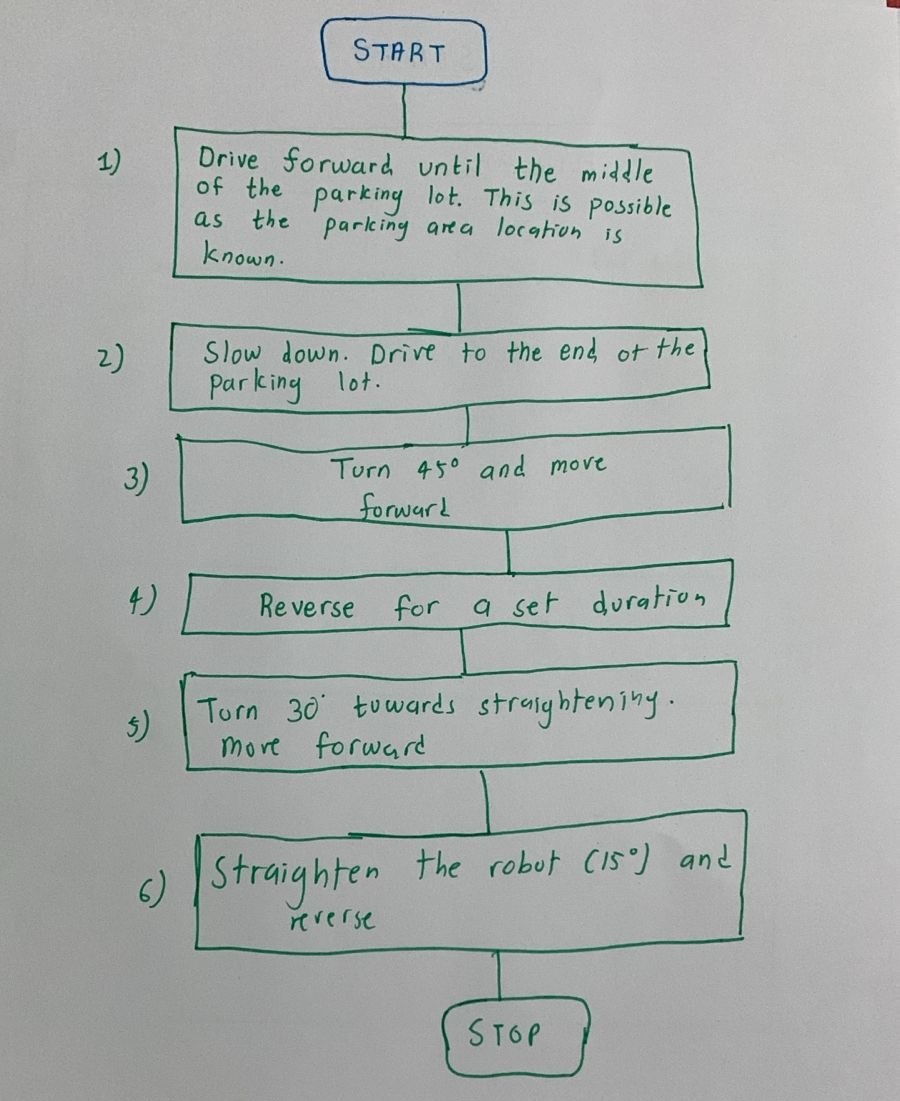 START
1) Drive forward until the middle
of the parking lot. This is possible
as the parking area location is
known.
2) Slow down. Drive to the end of the
parking lot.
3) Turn 45° and move
forward
4) Reverse for a set duration
5) Turn 30° towards straightening.
move forward
6) Straighten the robot (15°) and
reverse
STOP